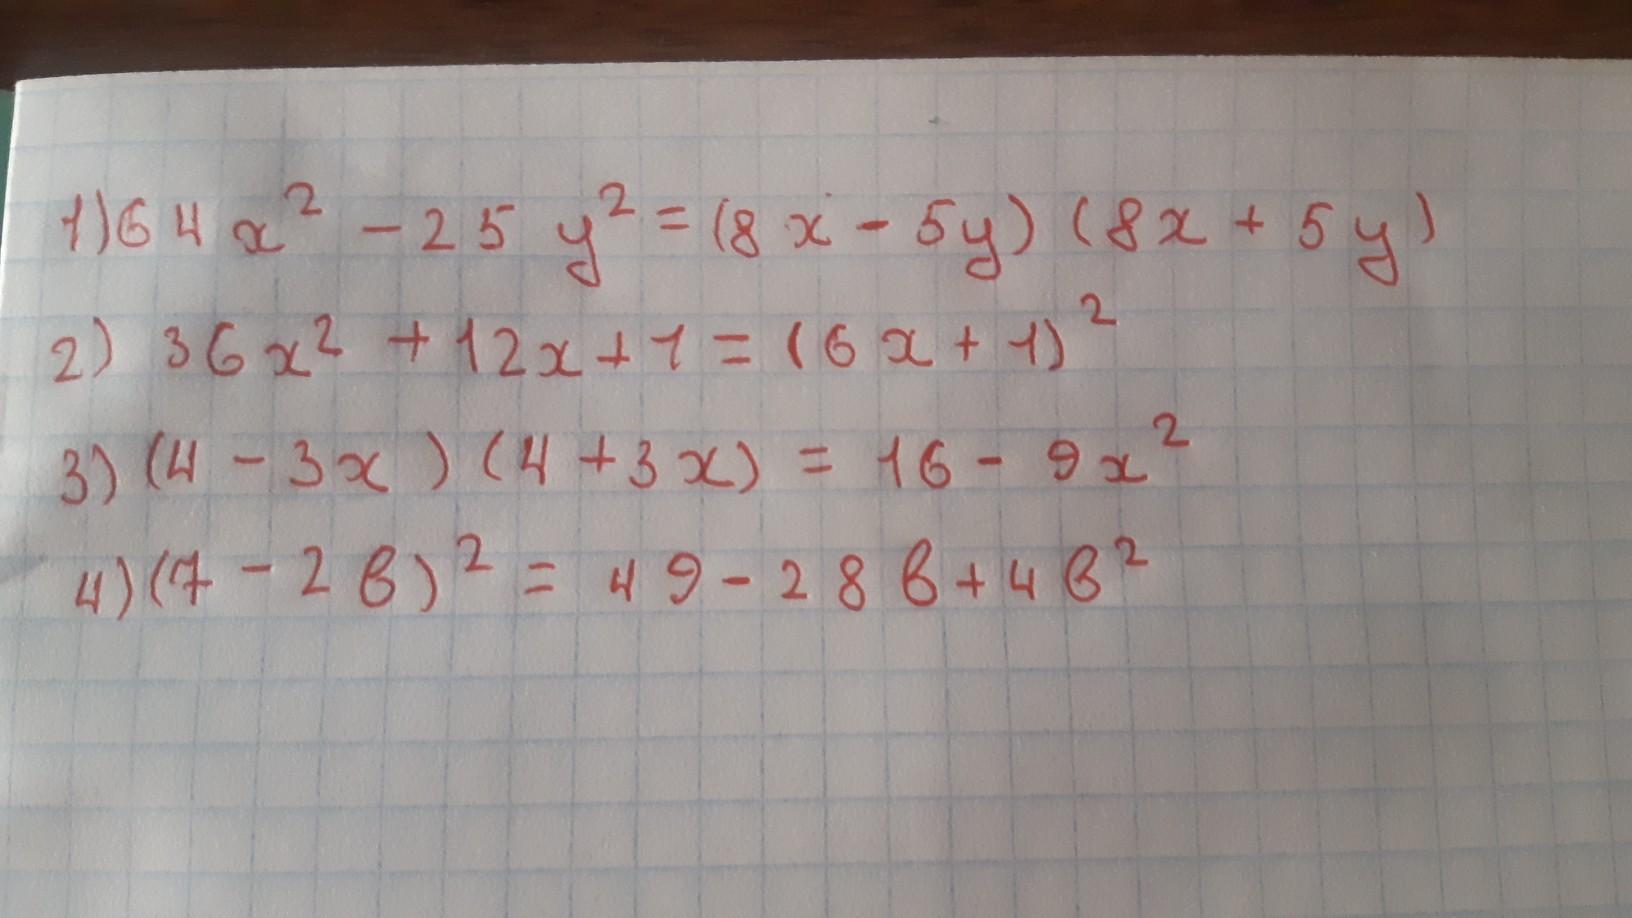 1) 64x² - 25y² = (8x - 5y)(8x + 5y)
2) 36x² + 12x + 1 = (6x + 1)²
3) (4 - 3x)(4 + 3x) = 16 - 9x²
4) (7 - 2в)² = 49 - 28в + 4в²